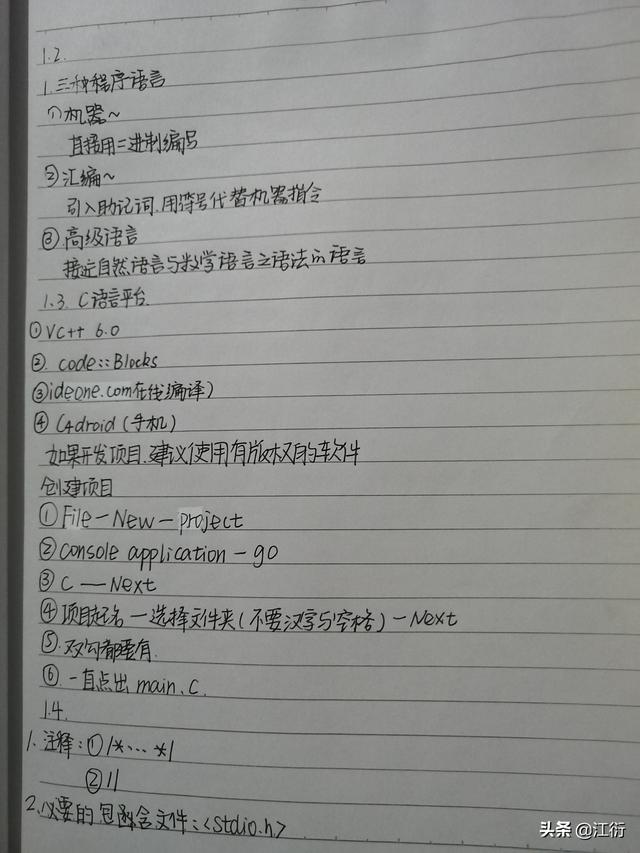 1.2.
1.三种程序语言
①机器~
直接用二进制编号
②汇编~
引入助记词.用符号代替机器指令
③高级语言
接近自然语言与数学语言之语法的语言
1.3. C语言平台.
①VC++ 6.0
②. code::Blocks
③ideone.com在线编译)
④C4droid(手机)
如果开发项目.建议使用有版权的软件
创建项目
①File-New-project
②console application-go
③C—Next
④项目起名-选择文件夹(不要汉字与空格)-Next
⑤.双勾都要有.
⑥.一直点出main.c.
1.4.
1.注释:①/*... *|
②//
2.必要的包含文件:<stdio.h>
头条@江衍